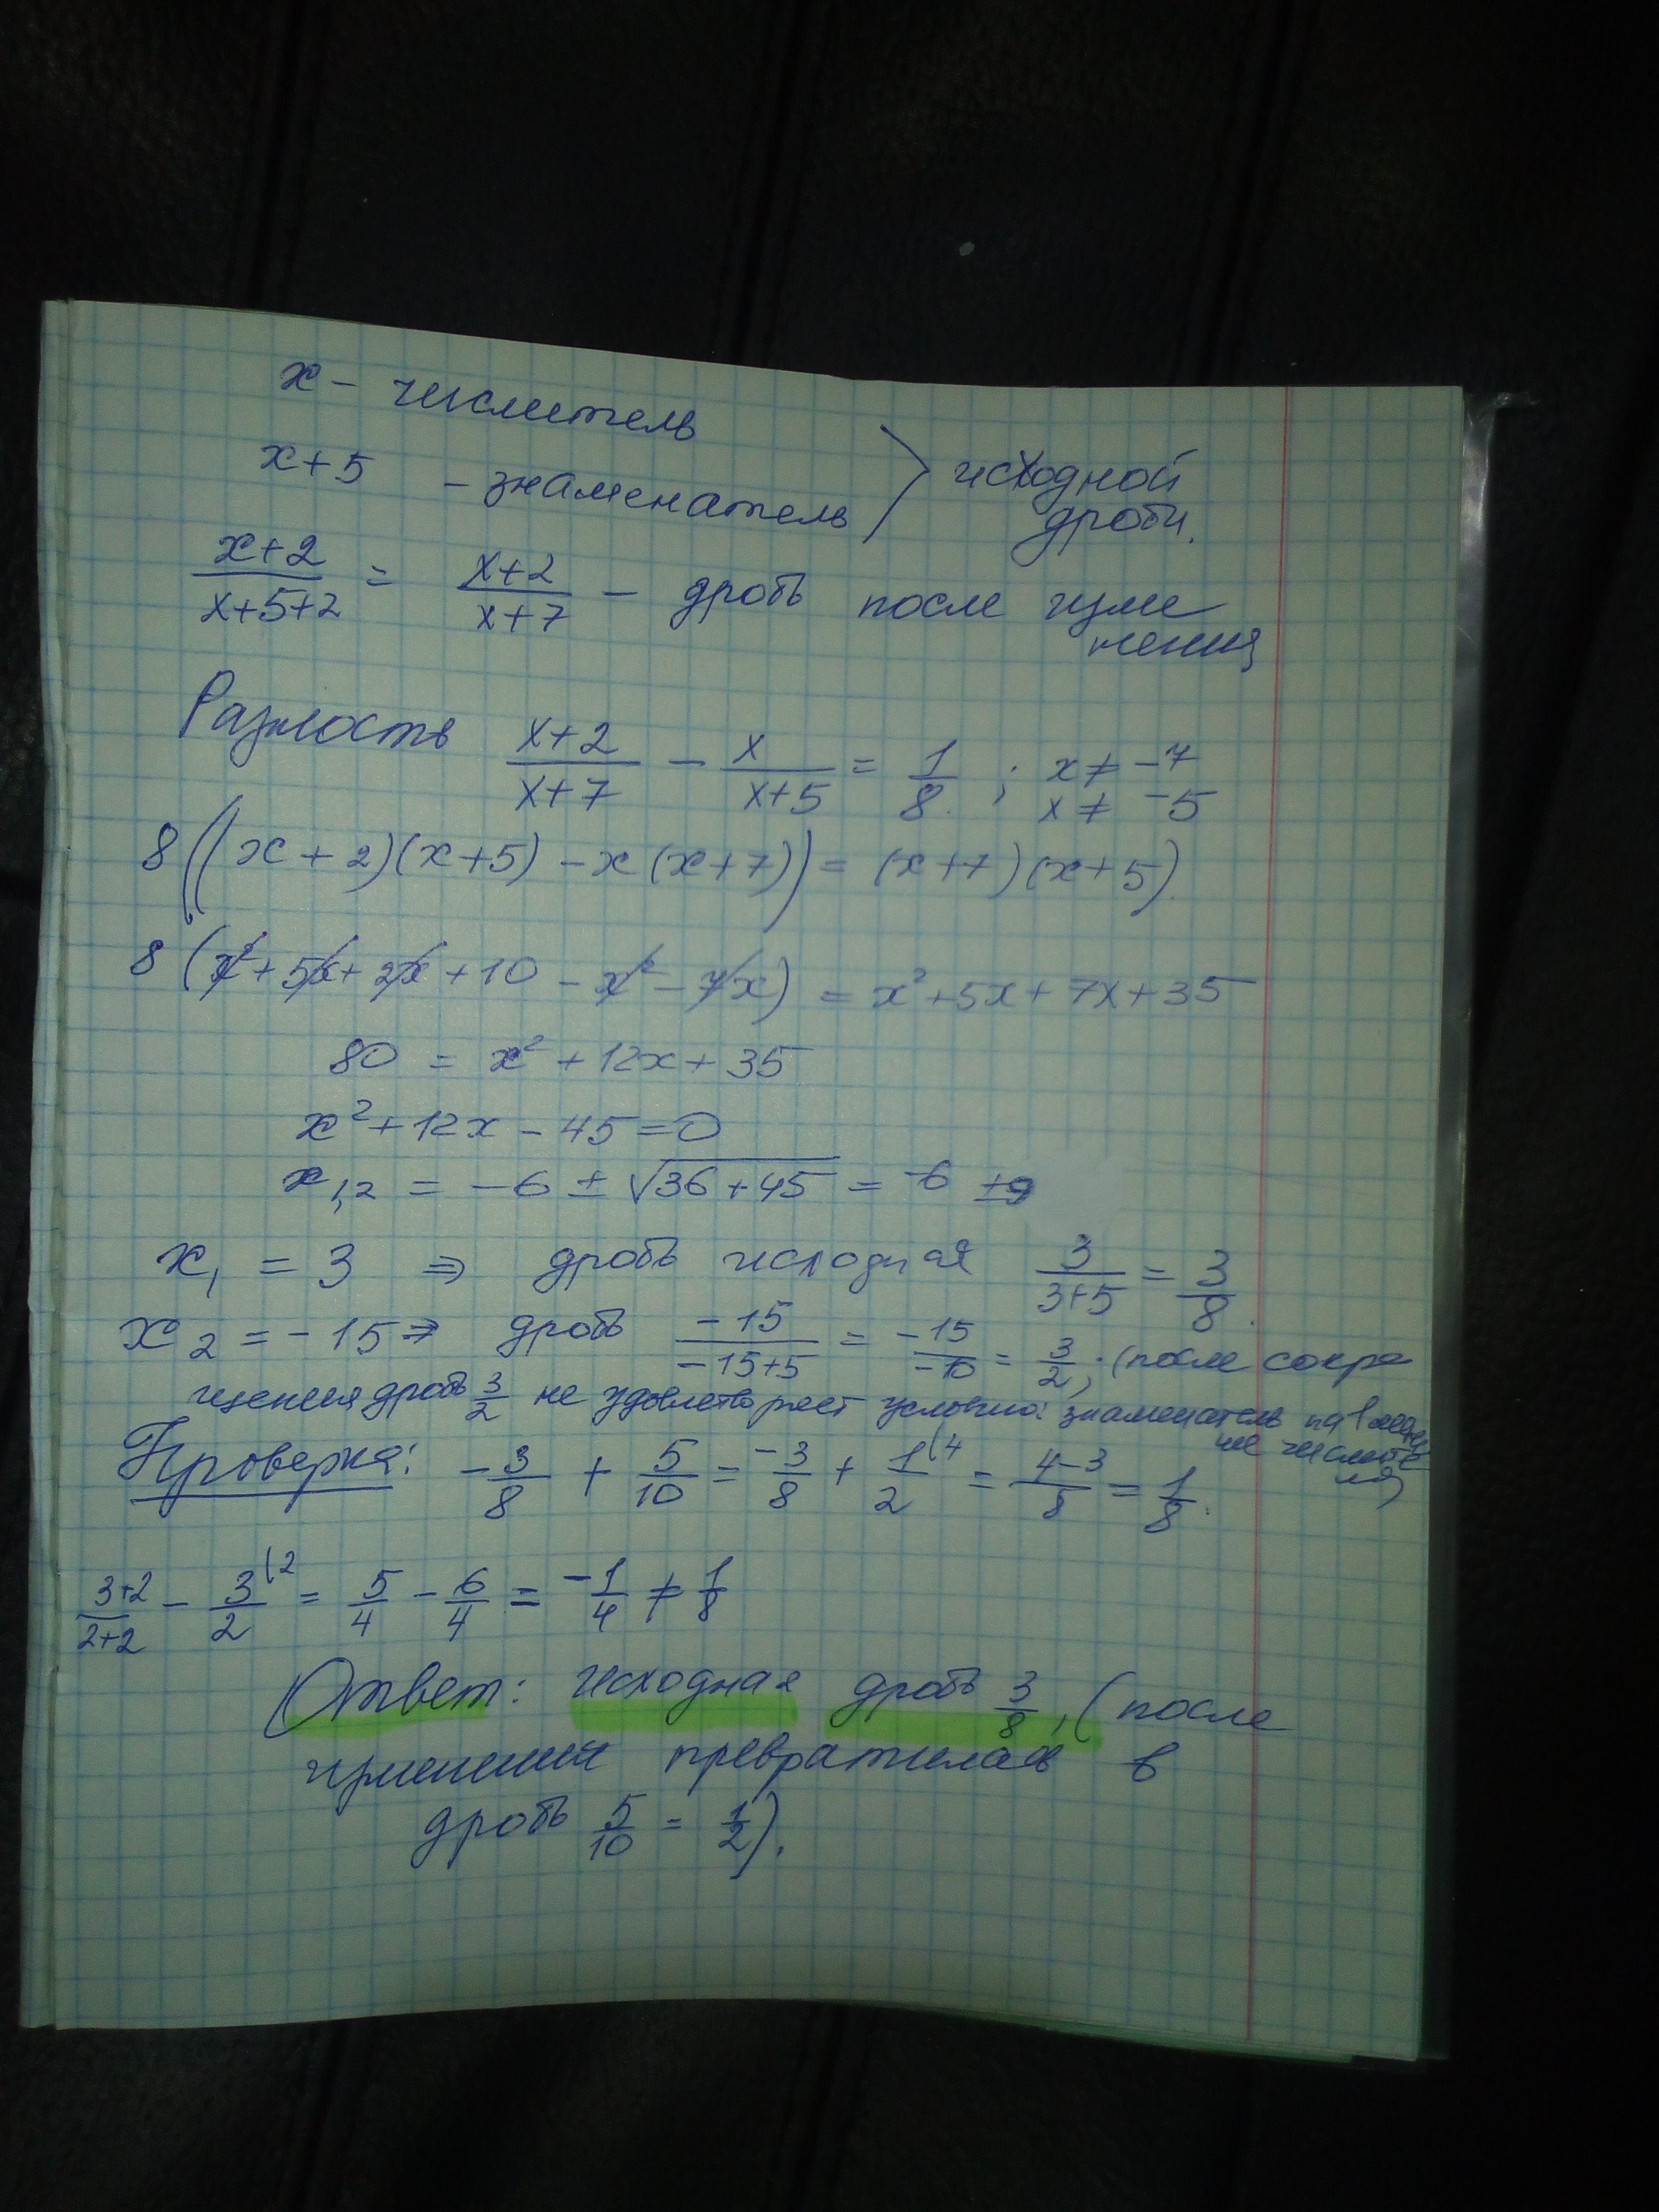 x – числитель
x+5 – знаменатель } исходной дроби.
(x+2)/(x+5+2) = (x+2)/(x+7) – дробь после изменения
Разность (x+2)/(x+7) – x/(x+5) = 1/8 ; x ≠ -7 x ≠ -5
8((x+2)(x+5) – x(x+7)) = (x+7)(x+5)
8(x²+5x+2x+10 – x² – 7x) = x²+5x+7x+35
80 = x²+12x+35
x²+12x–45=0
x1,2 = –6 ± √(36+45) = -6 ±9
x1 = 3 ⇒ дробь исходная 3/(3+5) = 3/8.
x2 = -15 ⇒ дробь -15/(-15+5) = -15/-10 = 3/2; (после сокра
щения дробь 3/2 не удовлетворяет условию: знаменатель на 1 мень
ше числите
ля)
Проверка: -3/8 + 5/10 = -3/8 + 1/2 (4 = (4–3)/8 = 1/8.
(3+2)/(2+2) – 3/2 (2 = 5/4 – 6/4 = -1/4 ≠ 1/8
Ответ: исходная дробь 3/8, (после
изменения превратилась в
дробь 5/10 = 1/2).